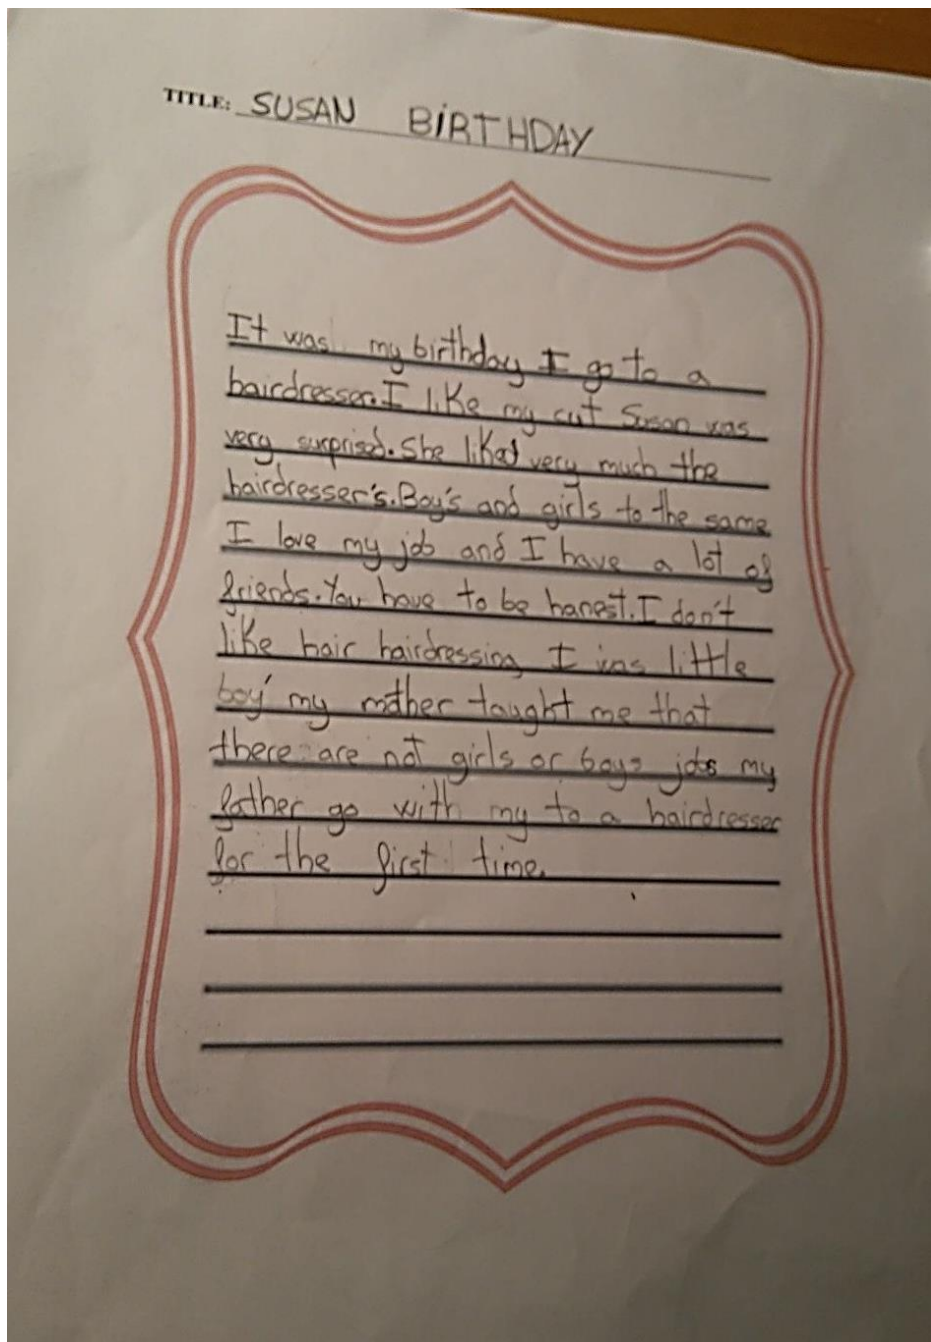 TITLE: SUSAN BIRTHDAY
It was my birthday I go to a
hairdresser. I like my cut Susan was
very surprised. She liked very much the
hairdresser's. Boy's and girls to the same
I love my job and I have a lot of
friends. You have to be hanest. I don't
like hair hairdressing I was little
boy my mother taught me that
there are not girls or boys jobs my
father go with my to a hairdresser
for the first time.